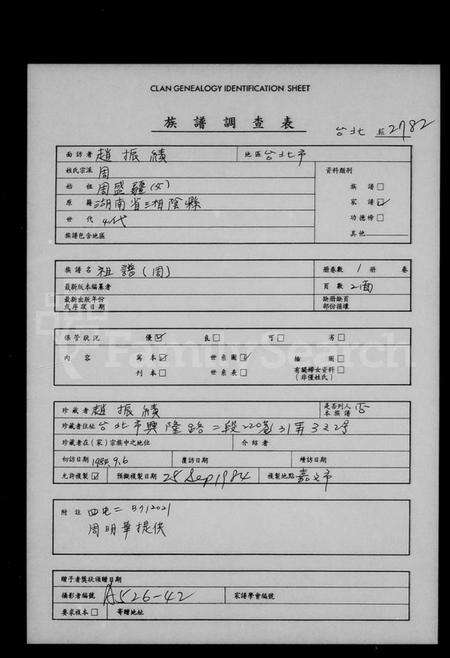 CLAN GENEALOGY IDENTIFICATION SHEET
族譜調查表
台北 2782
面訪者 趙振績 地區 台北市
姓氏宗派 周 資料類別
始祖 周盛 族譜□
原籍 湖南省湘陰縣 家譜☑
世代 4代 功德榜□
族譜包含地區 其他
族譜名 祖譜(周) 冊卷數 1 冊 卷
最新版本編纂者 頁數 2面
最新出版年份 缺冊缺頁
或序跋日期 部份描述
保管狀況 優☑ 良□ 可□ 劣□
內容 寫本☑ 世系圖☑ 插圖□
刊本□ 世系表□ 有關婦女資料□
(非僅姓氏)
珍藏者 趙振績 是否列入本族譜 否
珍藏者住址 台北市興隆路二段220巷31弄3號
珍藏者在(家)宗族中之地位 介紹者
初訪日期 1984.9.6 覆訪日期 續訪日期
允許複製☑ 預擬複製日期 28 Sep 1984 複製地點
附註
周明華提供
贈予者獎狀頒贈日期
攝影者編號 A526-42 家譜學會編號
要求複本□ 寄贈地址
FamilySearch